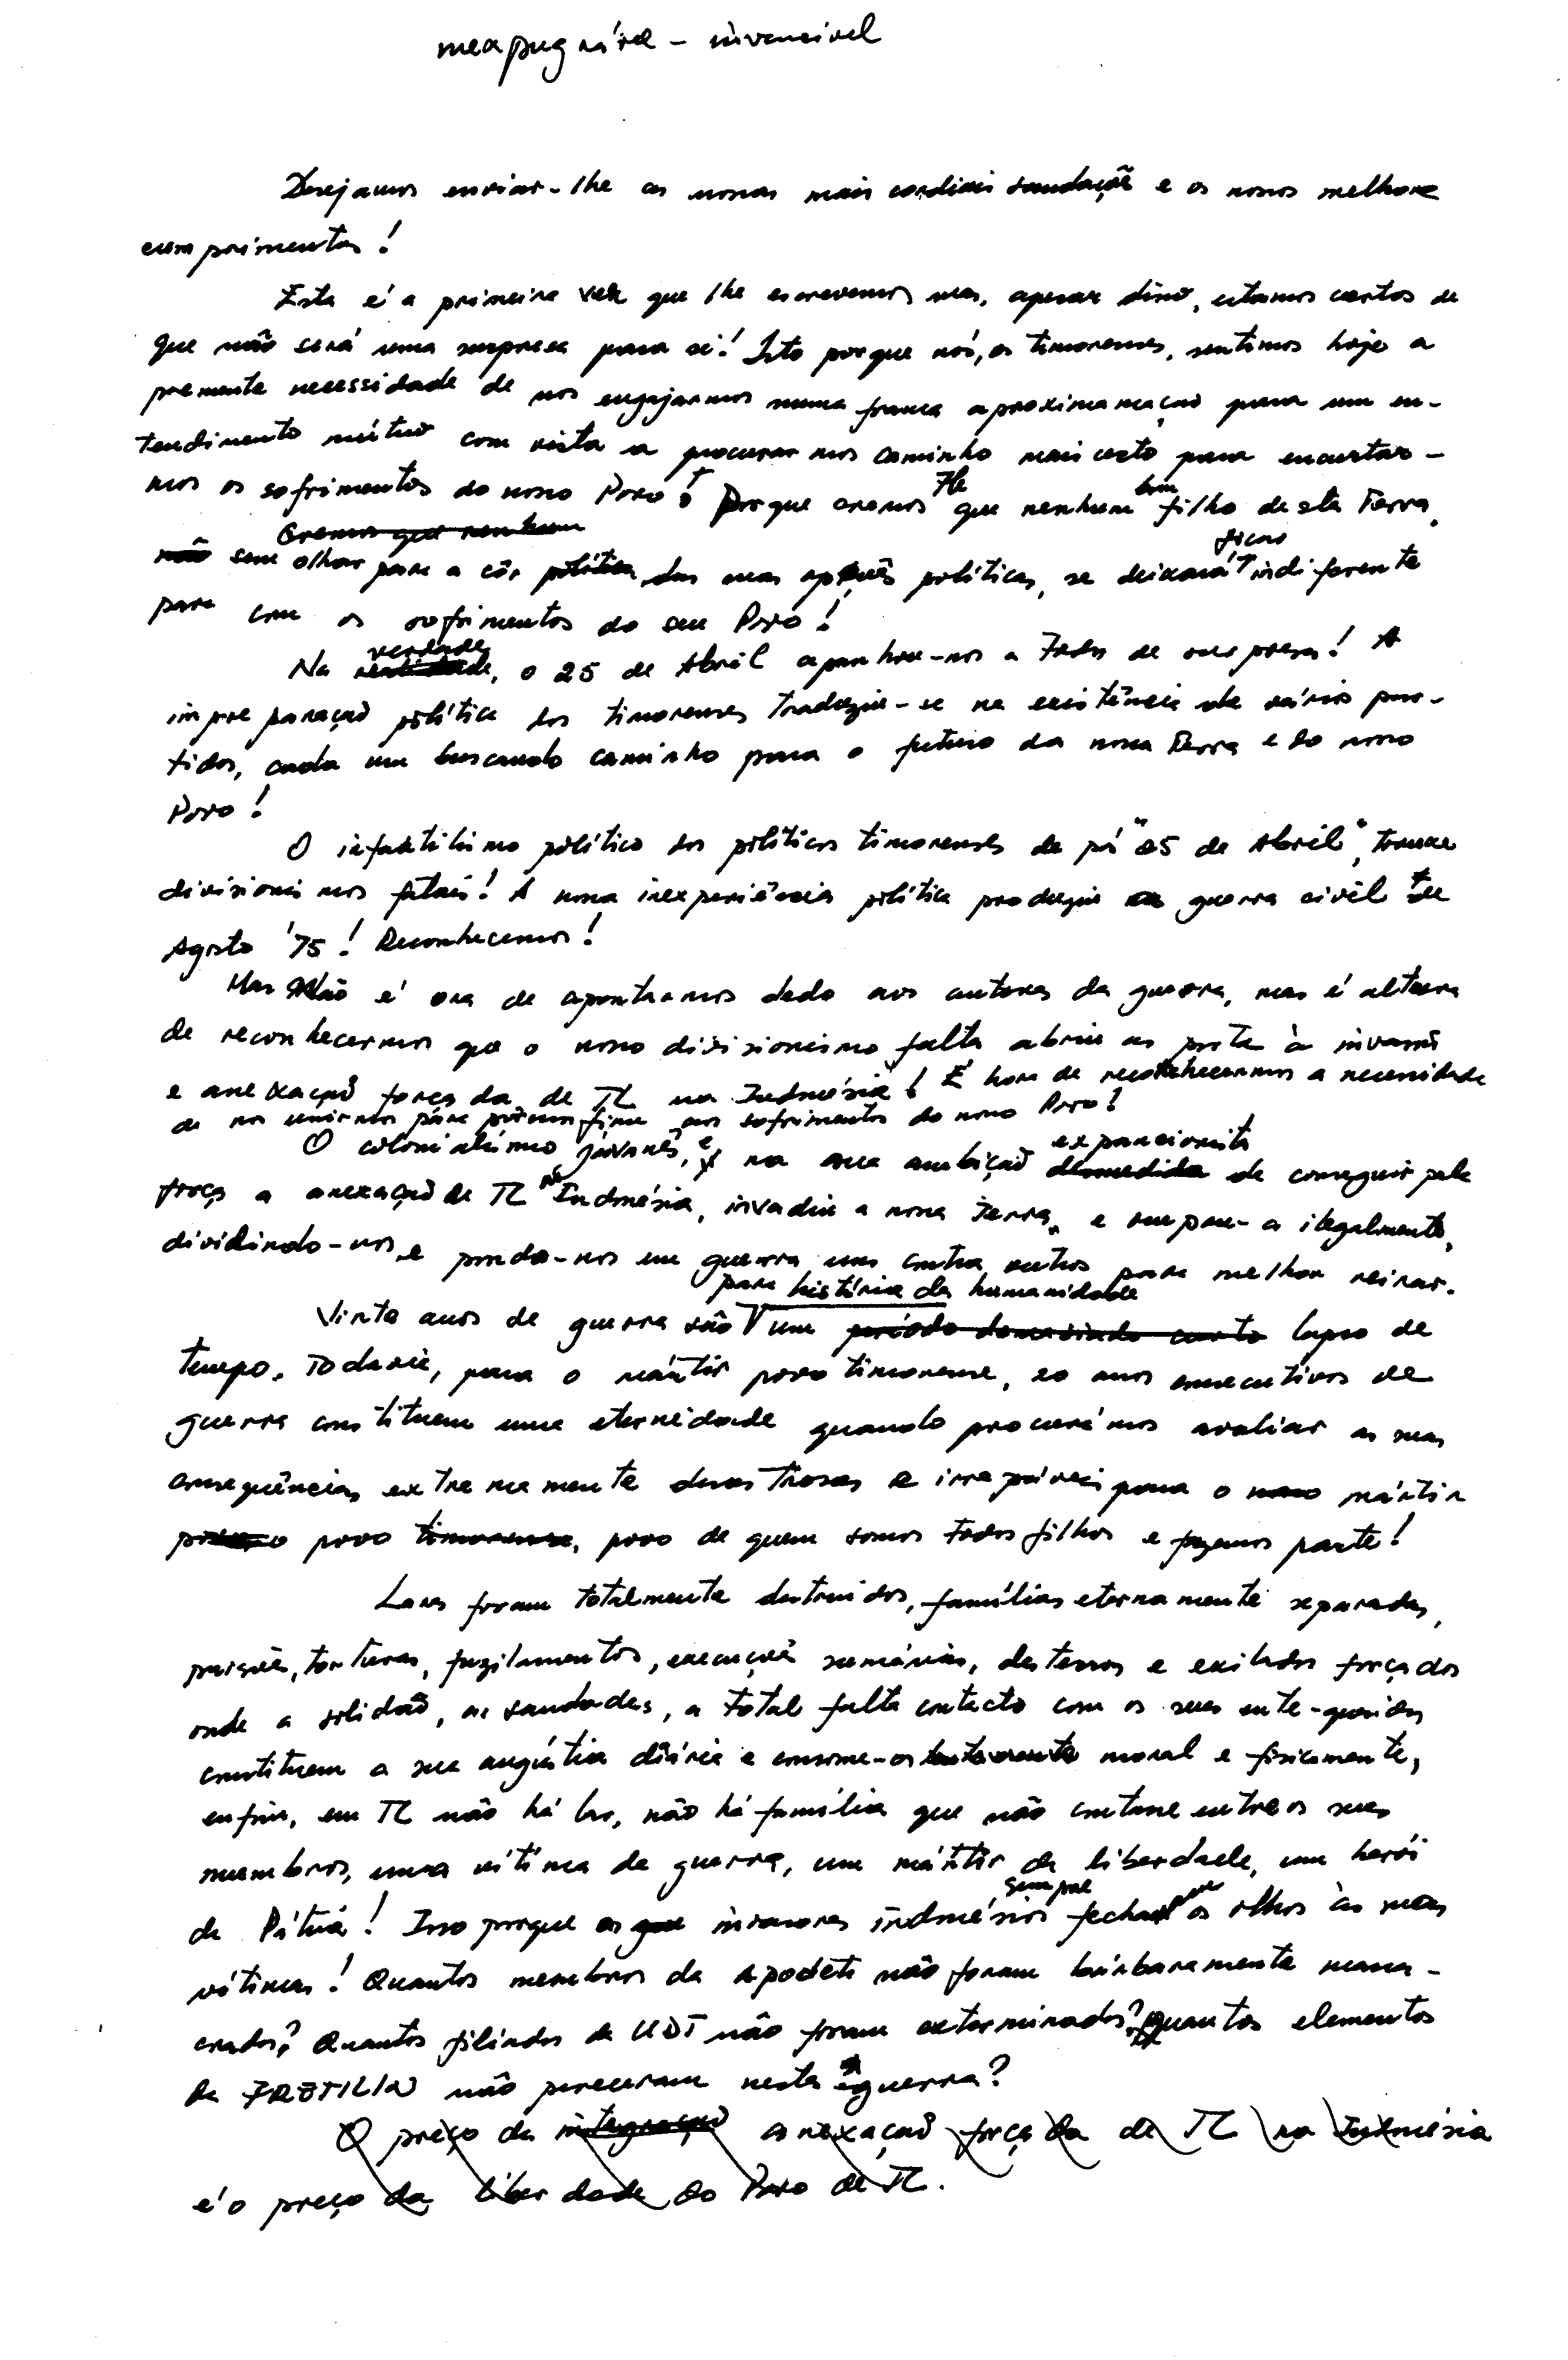 inexpugnável - invencível
Desejamos enviar-lhe as nossas mais cordiais saudações e os nossos melhores
cumprimentos!
Esta é a primeira vez que lhe escrevemos mas, apesar disso, estamos certos de
que não será uma surpresa para si! Isto porque nós, os timorenses, sentimos hoje a
premente necessidade de nos engajarmos numa franca aproximação para um en-
tendimento mútuo com vista a procurarmos caminho mais certo para encurtar-
mos os sofrimentos do nosso Povo! Porque cremos que nenhum bom filho desta Terra,
Cremos que nenhum
não sem olhar para a côr política das suas opções políticas, se deixará ficar indiferente
para com os sofrimentos do seu Povo!
Na realidade verdade, o 25 de Abril apanhou-nos a todos de surpresa! A
impreparação política dos timorenses traduziu-se na existência de vários par-
tidos, cada um buscando caminho para o futuro da nossa Terra e do nosso
Povo!
O infantilismo político dos políticos timorenses de pós "25 de Abril", trouxe
divisionismos fatais! A nossa inexperiência política produziu a guerra civil de
Agosto '75! Reconhecemos!
Mas Não é ora de apontarmos dedo aos autores da guerra, mas é altura
de reconhecermos que o nosso divisionismo abriu as portas à invasão
e anexação forçada de TL na Indonésia! É hora de reconhecermos a necessidade
de nos unirmos para pôrmos fim aos sofrimentos do nosso Povo!
O colonialismo javanês, na sua ambição desmedida expansionista de conseguir pela
força a anexação de TL na Indonésia, invadiu a nossa Terra e ocupou-a ilegalmente,
dividindo-nos e pondo-nos em guerra uns contra outros para melhor reinar.
para história da humanidade
Vinte anos de guerra são um período demasiado curto lapso de
tempo. Todavia, para o mártir povo timorense, 20 anos consecutivos de
guerra constituem uma eternidade quando procurármos avaliar as suas
consequências extremamente desastrosas e irreparáveis para o nosso mártir
povo timorense, povo de quem somos todos filhos e fazemos parte!
Lares foram totalmente destruidos, famílias eternamente separadas,
prisões, torturas, fuzilamentos, execuções sumárias, desterros e exilados forçados
onde a solidão, as saudades, a total falta contacto com os seus ente-queridos
constituem a sua angústia diária e consome-os lentamente moral e fisicamente,
enfim, em TL não há lar, não há família que não contasse entre os seus
membros, uma vítima da guerra, um mártir da liberdade, um herói
da Pátria! Isso porque os que invasores indonésios sempre fecharam os olhos às suas
vítimas! Quantos membros da Apodeti não foram bárbaramente massa-
crados? Quantos filiados da UDT não foram exterminados? Quantos elementos
da FRETILIN não pereceram nesta guerra?
O preço da integração anexação forçada de TL na Indonésia
é o preço da liberdade do Povo de TL.